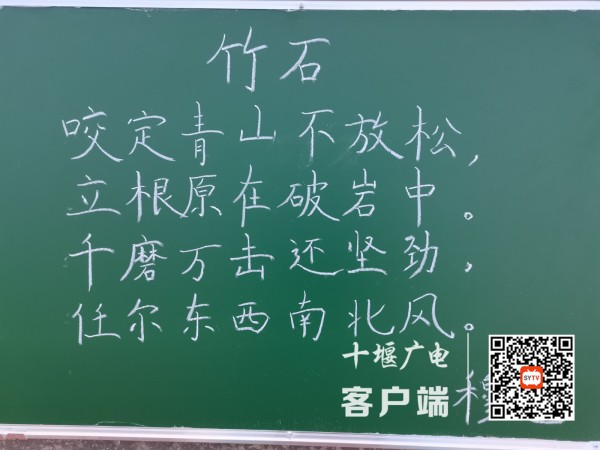 竹石
咬定青山不放松，
立根原在破岩中。
千磨万击还坚劲，
任尔东西南北风。
十堰广电
客户端
SYTV